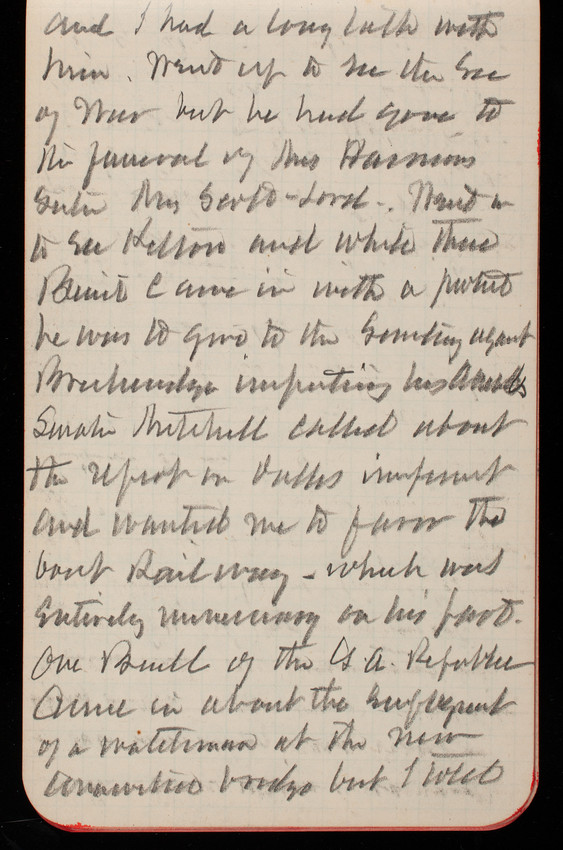 and I had a long talk with
him. Went up to see the Sec
of War but he had gone to
the funeral of Mrs Harrisons
Sister Mrs Scott-Lord. Went in
to see Kelton and while there
Benét came in with a protest
he was to give to the
Breckenridge inspecting his
Senator Mitchell called about
the report on Dalles improvmt
and wanted me to favor the
boat Railway - which was
entirely unnecessary on his part.
One Buell of the G A. Republic
Came in about the
of a watchman at the new
Anacostia bridge but I told